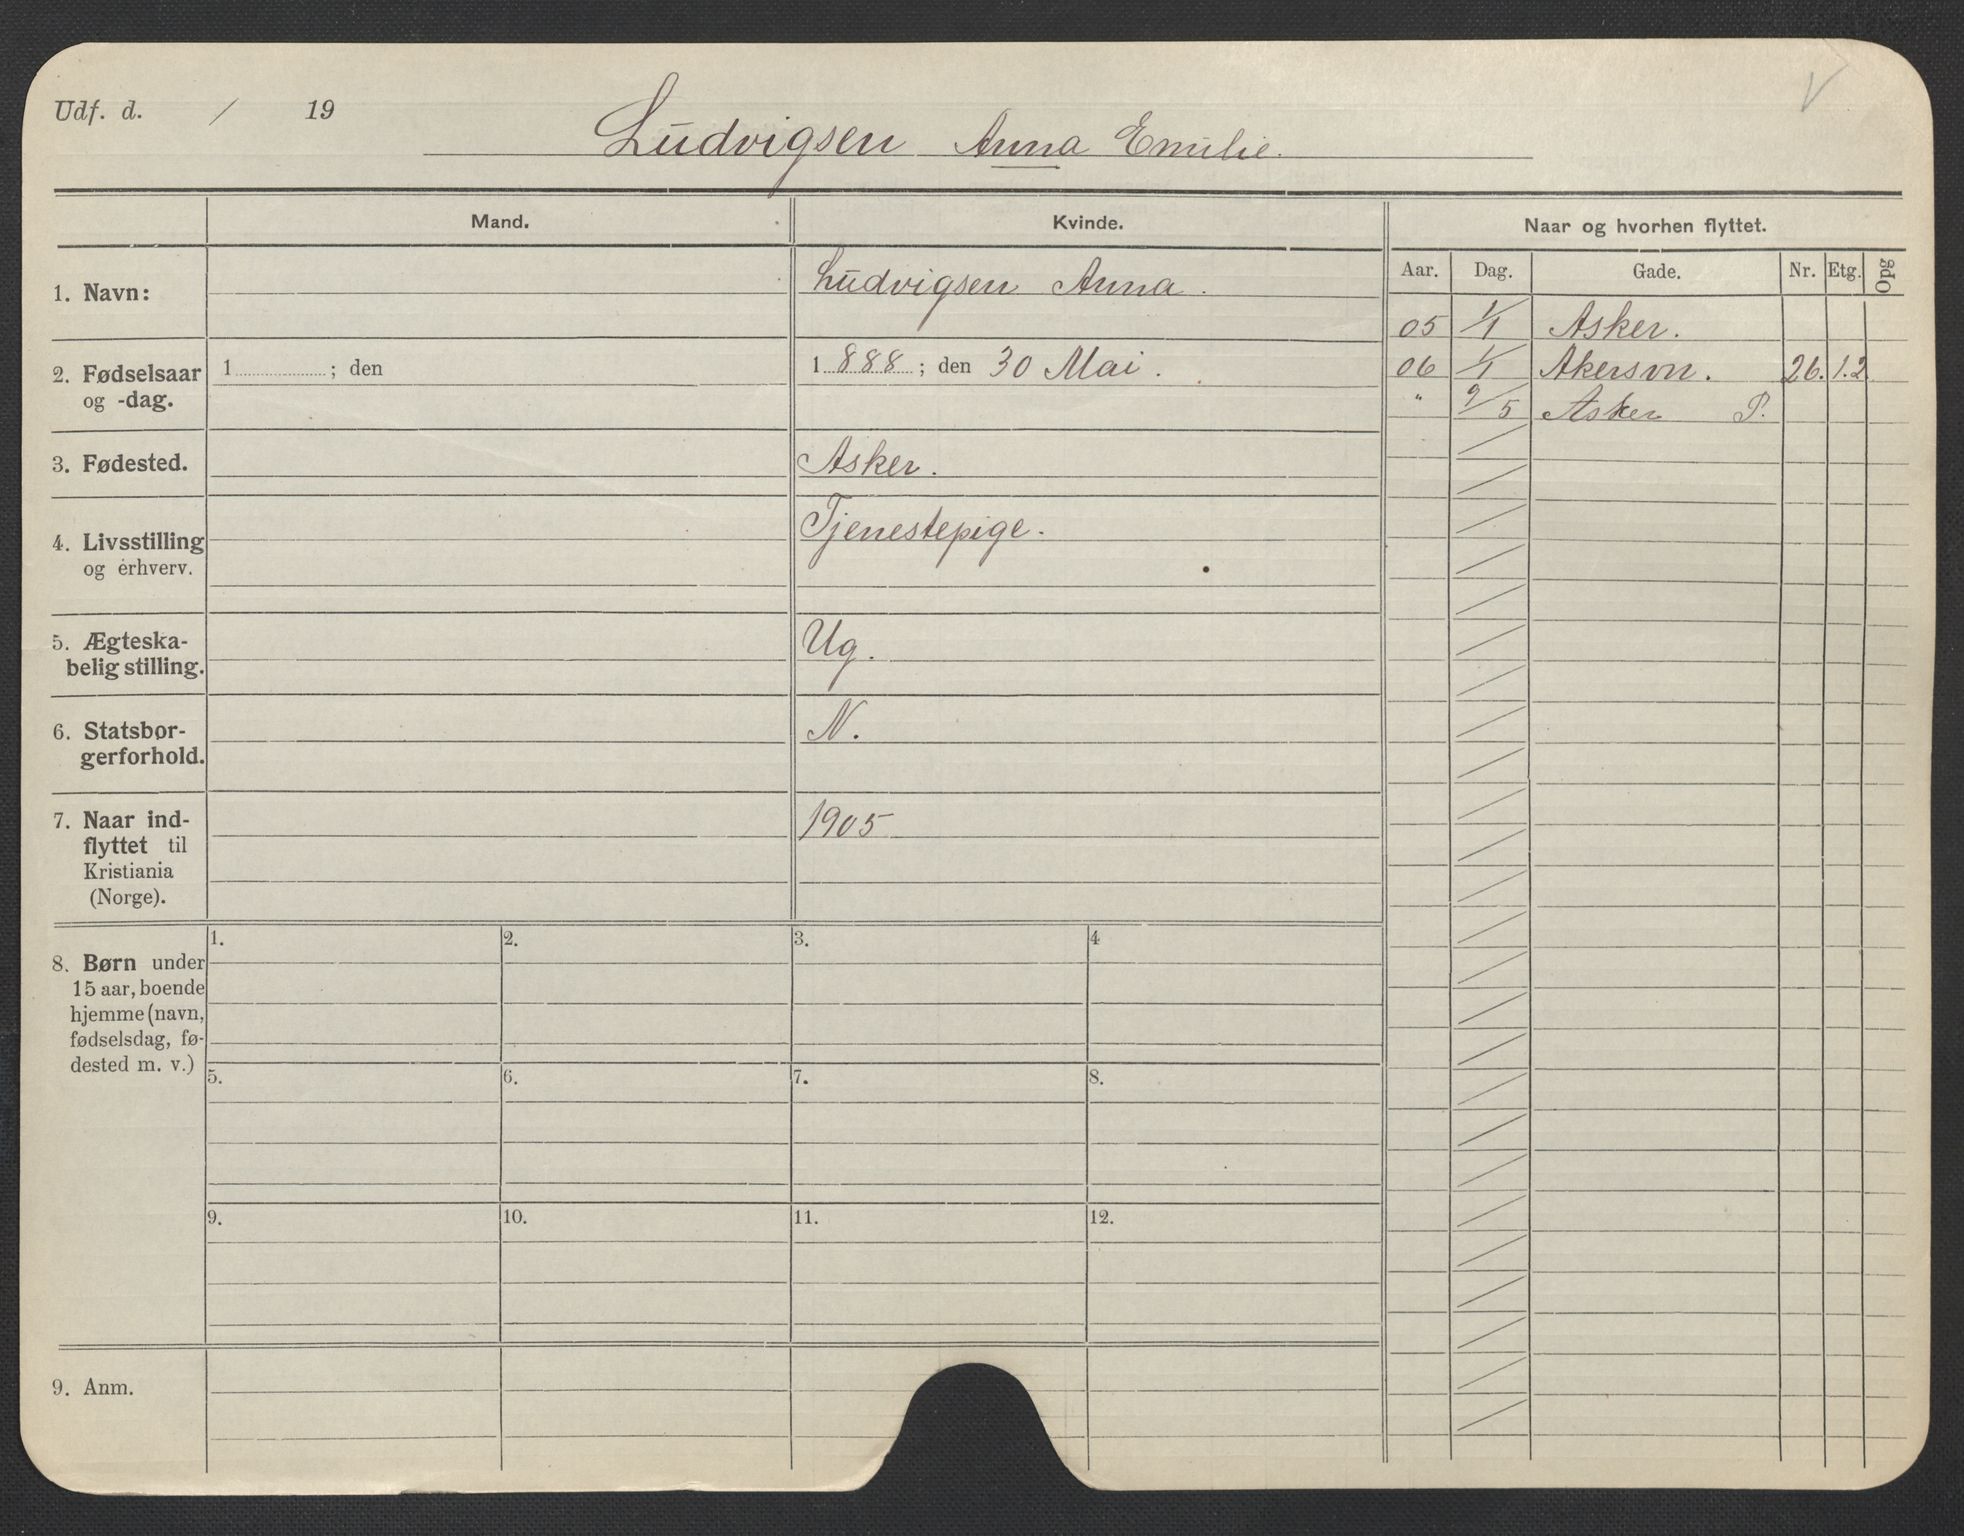 Udf. d. / 19
Ludvigsen Anna Emilie.
V
Mand.
Kvinde.
Naar og hvorhen flyttet.
Aar. Dag. Gade. Nr. Etg. Opg
1. Navn:
Ludvigsen Anna.
05 1/1 Asker.
2. Fødselsaar
og -dag.
1 ; den
1 888 ; den 30 Mai.
06 1/1 Akersvn. 26. 1.2.
" 9/5 Asker P.
3. Fødested.
Asker.
4. Livsstilling
og erhverv.
Tjenestepige.
5. Ægteska-
belig stilling.
Ug.
6. Statsbor-
gerforhold.
N.
7. Naar ind-
flyttet til
Kristiania
(Norge).
1905
8. Børn under
15 aar, boende
hjemme (navn,
fødselsdag, fø-
dested m. v.)
1. 2. 3. 4
5. 6. 7. 8.
9. 10. 11. 12.
9. Anm.